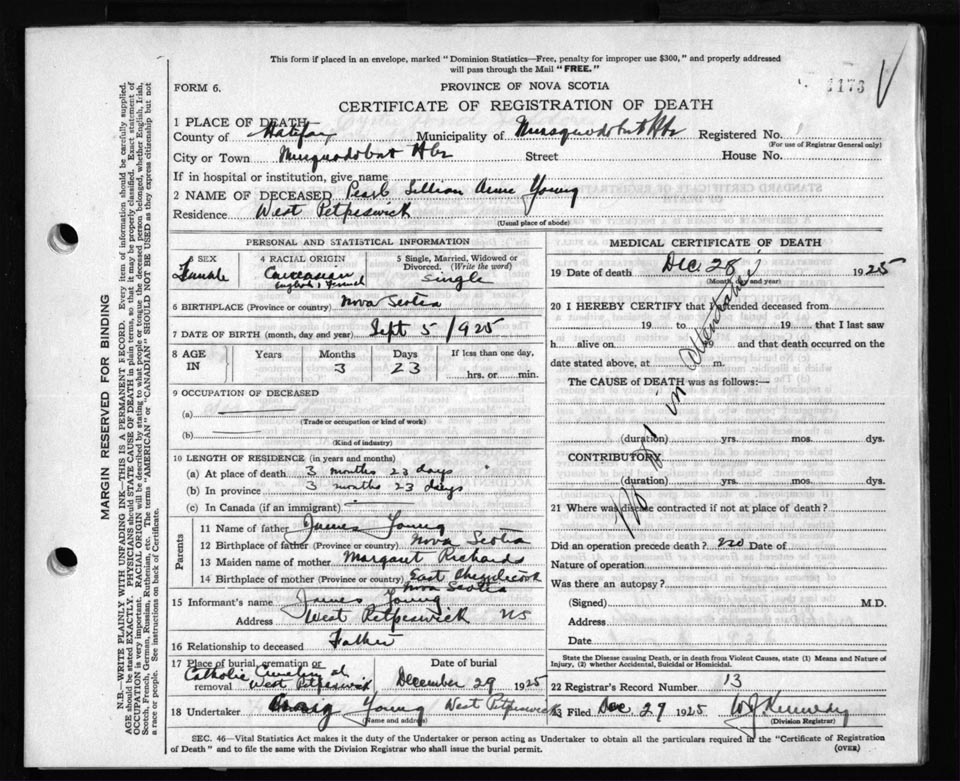 This form if placed in an envelope, marked "Dominion Statistics—Free, penalty for improper use $300," and properly addressed
will pass through the Mail "FREE."
1173
FORM 6.
PROVINCE OF NOVA SCOTIA
CERTIFICATE OF REGISTRATION OF DEATH
1 PLACE OF DEATH
County of Halifax Municipality of Musquodobut Hbr Registered No.
(For use of Registrar General only)
City or Town Musquodobut Hbr Street House No.
If in hospital or institution, give name
2 NAME OF DECEASED Pearl Lillian Anne Young
Residence West Petpeswick
(Usual place of abode)
MARGIN RESERVED FOR BINDING
N.B.—WRITE PLAINLY WITH UNFADING INK—THIS IS A PERMANENT RECORD. Every item of information should be carefully supplied.
AGE should be stated EXACTLY. PHYSICIANS should STATE CAUSE OF DEATH in plain terms, so that it may be properly classified. Exact statement of
OCCUPATION is very important. RACIAL ORIGIN will be described by stating to what people or tongue the deceased person belonged, whether English, Irish,
Scotch, French, German, Russian, Ruthenian, etc. The terms "AMERICAN" or "CANADIAN" SHOULD NOT BE USED as they express citizenship but not
a race or people. See instructions on back of Certificate.
PERSONAL AND STATISTICAL INFORMATION
3 SEX
Female
4 RACIAL ORIGIN
Caucasian
English & French
5 Single, Married, Widowed or
Divorced. (Write the word)
Single
6 BIRTHPLACE (Province or country) Nova Scotia
7 DATE OF BIRTH (month, day and year) Sept 5/1925
8 AGE IN
Years Months Days If less than one day,
3 23 hrs. or min.
9 OCCUPATION OF DECEASED
(a)
(Trade or occupation or kind of work)
(b)
(Kind of industry)
10 LENGTH OF RESIDENCE (in years and months)
(a) At place of death 3 months 23 days
(b) In province 3 months 23 days
(c) In Canada (if an immigrant)
Parents
11 Name of father James Young
12 Birthplace of father (Province or country) Nova Scotia
13 Maiden name of mother Margaret Richards
14 Birthplace of mother (Province or country) East Chezzetcook
Nova Scotia
15 Informant's name James Young
Address West Petpeswick NS
16 Relationship to deceased Father
17 Place of burial, cremation or
removal
Catholic Cemetery at
West Petpeswick
Date of burial
December 29 1925
18 Undertaker Craig Young West Petpeswick
(Name and address)
MEDICAL CERTIFICATE OF DEATH
19 Date of death Dec. 28 1925
(Month, day and year)
20 I HEREBY CERTIFY that I attended deceased from
19 to 19 that I last saw
h alive on and that death occurred on the
date stated above, at m.
The CAUSE of DEATH was as follows:—
No Dr in attendance
(duration) yrs. mos. dys.
CONTRIBUTORY
(duration) yrs. mos. dys.
21 Where was disease contracted if not at place of death?
Did an operation precede death? no Date of
Nature of operation
Was there an autopsy?
(Signed) M.D.
Address
Date
State the Disease causing Death, or in death from Violent Causes, state (1) Means and Nature of
Injury, (2) whether Accidental, Suicidal or Homicidal.
22 Registrar's Record Number 13
23 Filed Dec 29 1925 W J Kennedy
(Division Registrar)
SEC. 46—Vital Statistics Act makes it the duty of the Undertaker or person acting as Undertaker to obtain all the particulars required in the "Certificate of Registration
of Death" and to file the same with the Division Registrar who shall issue the burial permit.
(OVER)